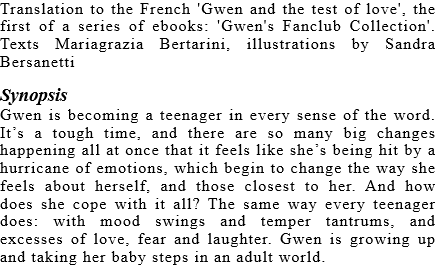 Translation to the French 'Gwen and the test of love', the
first of a series of ebooks: 'Gwen's Fanclub Collection'.
Texts Mariagrazia Bertarini, illustrations by Sandra
Bersanetti
Synopsis
Gwen is becoming a teenager in every sense of the word.
It’s a tough time, and there are so many big changes
happening all at once that it feels like she’s being hit by a
hurricane of emotions, which begin to change the way she
feels about herself, and those closest to her. And how
does she cope with it all? The same way every teenager
does: with mood swings and temper tantrums, and
excesses of love, fear and laughter. Gwen is growing up
and taking her baby steps in an adult world.